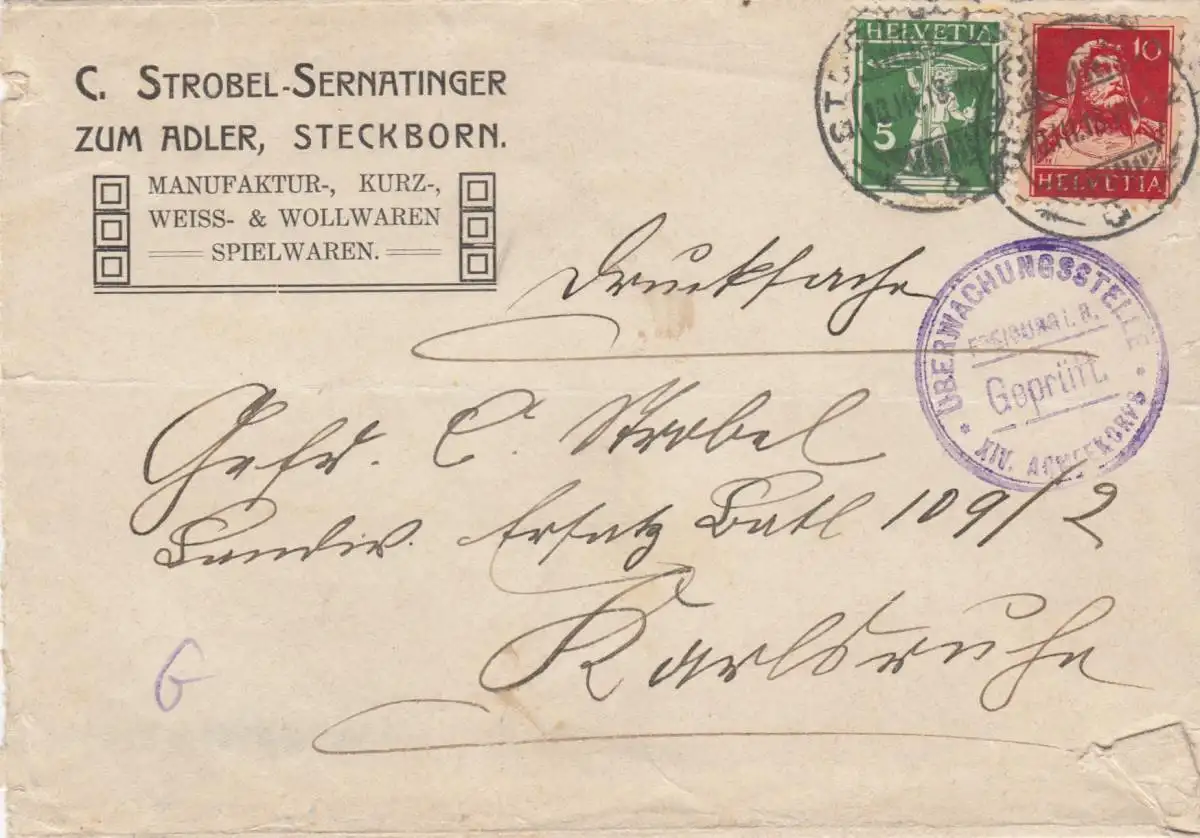 C. STROBEL-SERNATINGER
ZUM ADLER, STECKBORN.
MANUFAKTUR-, KURZ-,
WEISS- & WOLLWAREN
SPIELWAREN.
HELVETIA
5
10
HELVETIA
ÜBERWACHUNGSSTELLE
FREIBURG i. B.
Geprüft.
XIV. ARMEEKORPS
Drucksache
Gefr. C. Strobel
Landw. Ersatz Batl 109/2
Karlsruhe
G